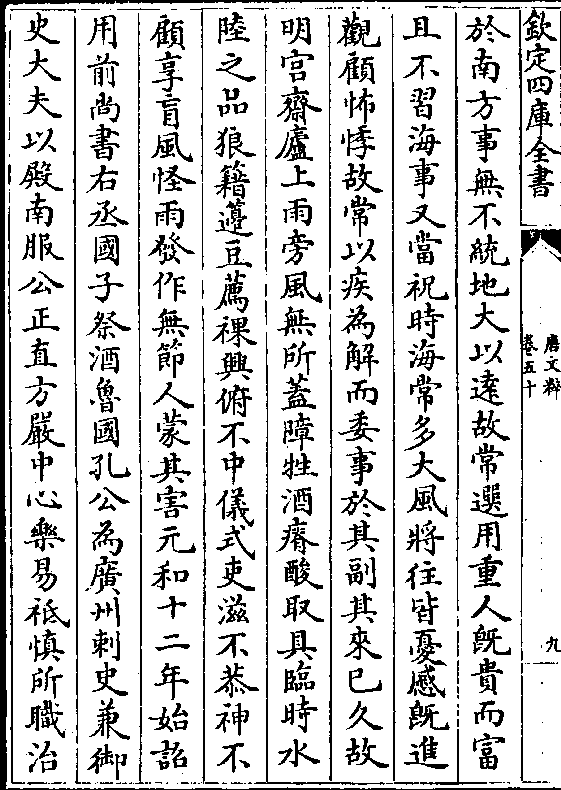 欽定四庫全書
唐文粹
卷五十
九
於南方事無不統地大以遠故常選用重人旣貴而富
且不習海事又當祝時海常多大風將往皆憂慼旣進
觀顧怖悸故常以疾為解而委事於其副其來已久故
明宫齋廬上雨旁風無所蓋障牲酒瘠酸取具臨時水
陸之品狼籍籩豆薦祼興俯不中儀式吏滋不恭神不
顧享盲風怪雨發作無節人蒙其害元和十二年始詔
用前尚書右丞國子祭酒魯國孔公為廣州刺史兼御
史大夫以殿南服公正直方嚴中心樂易祗慎所職治